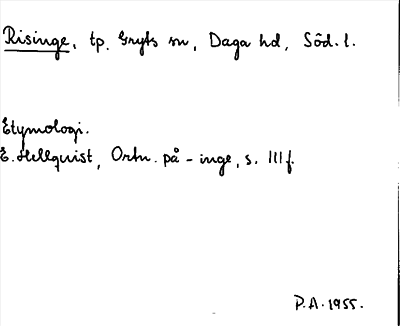 Risinge, tp. Gryts sn, Daga hd, Söd. l.
Etymologi.
E. Hellquist, Ortn. på -inge, s. 111 f.
P.A. 1955.